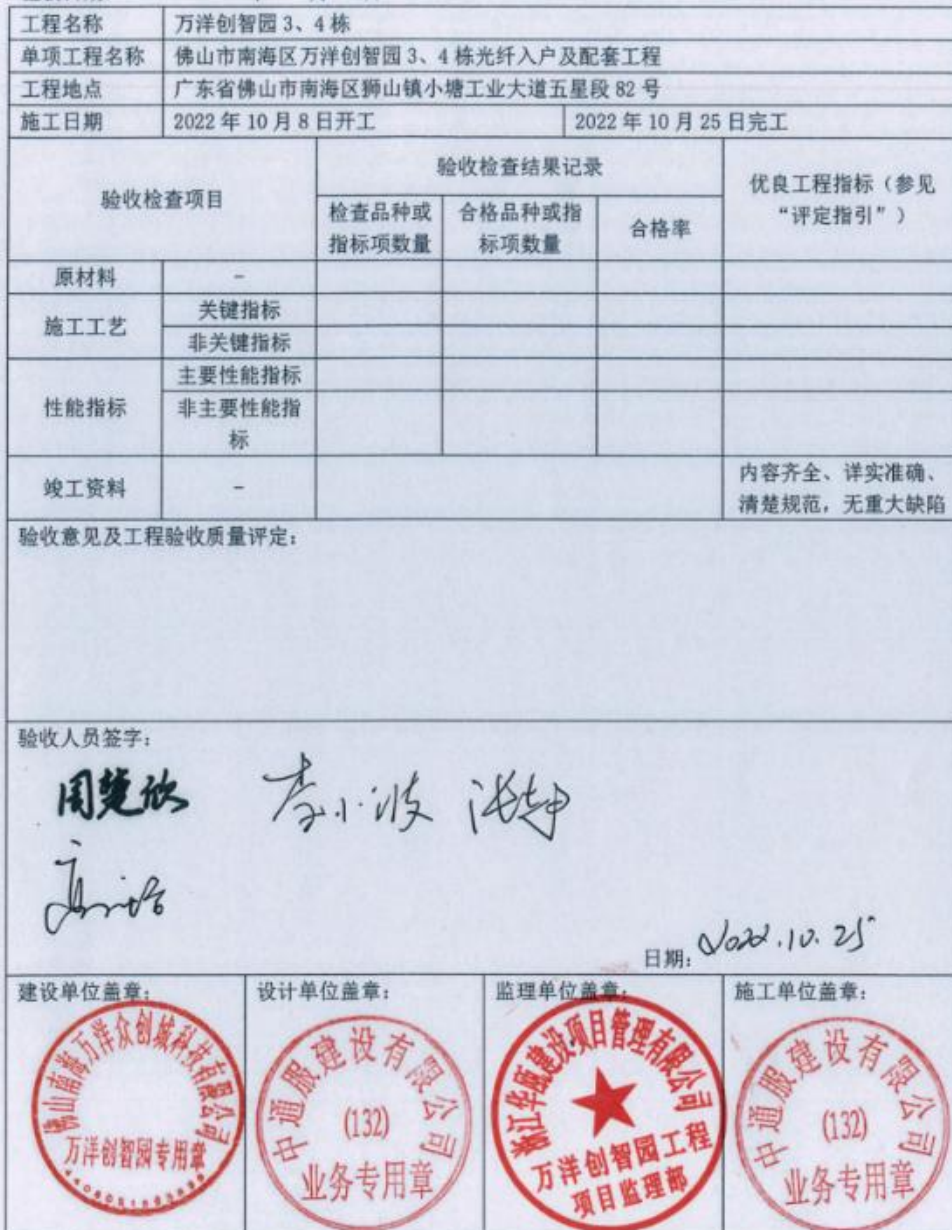 工程名称 万洋创智园 3、4 栋
单项工程名称 佛山市南海区万洋创智园 3、4 栋光纤入户及配套工程
工程地点 广东省佛山市南海区狮山镇小塘工业大道五星段 82 号
施工日期 2022 年 10 月 8 日开工 2022 年 10 月 25 日完工
验收检查项目 验收检查结果记录 优良工程指标（参见
“评定指引”）
检查品种或
指标项数量
合格品种或指
标项数量
合格率
原材料 -
施工工艺 关键指标
非关键指标
性能指标 主要性能指标
非主要性能指
标
竣工资料 - 内容齐全、详实准确、
清楚规范，无重大缺陷
验收意见及工程验收质量评定：
验收人员签字：
周楚欣 李小波
日期：2022.10.25
建设单位盖章： 设计单位盖章： 监理单位盖章： 施工单位盖章：
佛山南海万洋众创城科技有限公司
万洋创智园专用章
中通服建设有限公司
(132)
业务专用章
浙江华瓯建设项目管理有限公司
万洋创智园工程
项目监理部
中通服建设有限公司
(132)
业务专用章